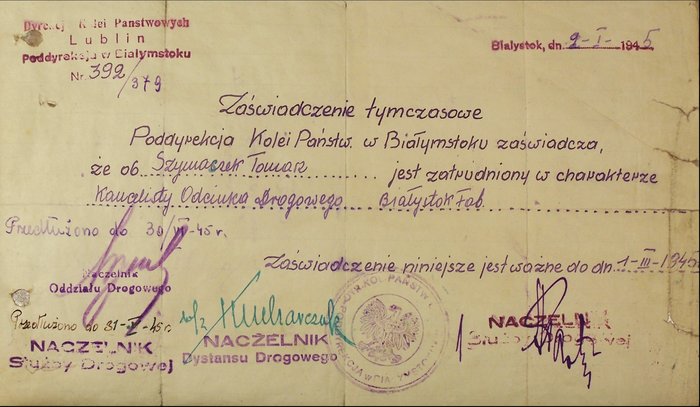 Dyrekcja Kolei Państwowych
Lublin
Poddyrekcja w Białymstoku
Nr. 392/379
Białystok, dn. 2-I- 1945
Zaświadczenie tymczasowe
Poddyrekcja Kolei Państw. w Białymstoku zaświadcza,
że ob. Szymaczek Tomasz jest zatrudniony w charakterze
Kancelisty Odcinka Drogowego Białystok Fab.
Przedłużono do 30/VI-45 r.
Zaświadczenie niniejsze jest ważne do dn. 1-III-1945
Naczelnik
Oddziału Drogowego
Przedłużono do 31-X-45 r.
NACZELNIK
Służby Drogowej
NACZELNIK
Dystansu Drogowego
NACZELNIK
Służby Drogowej